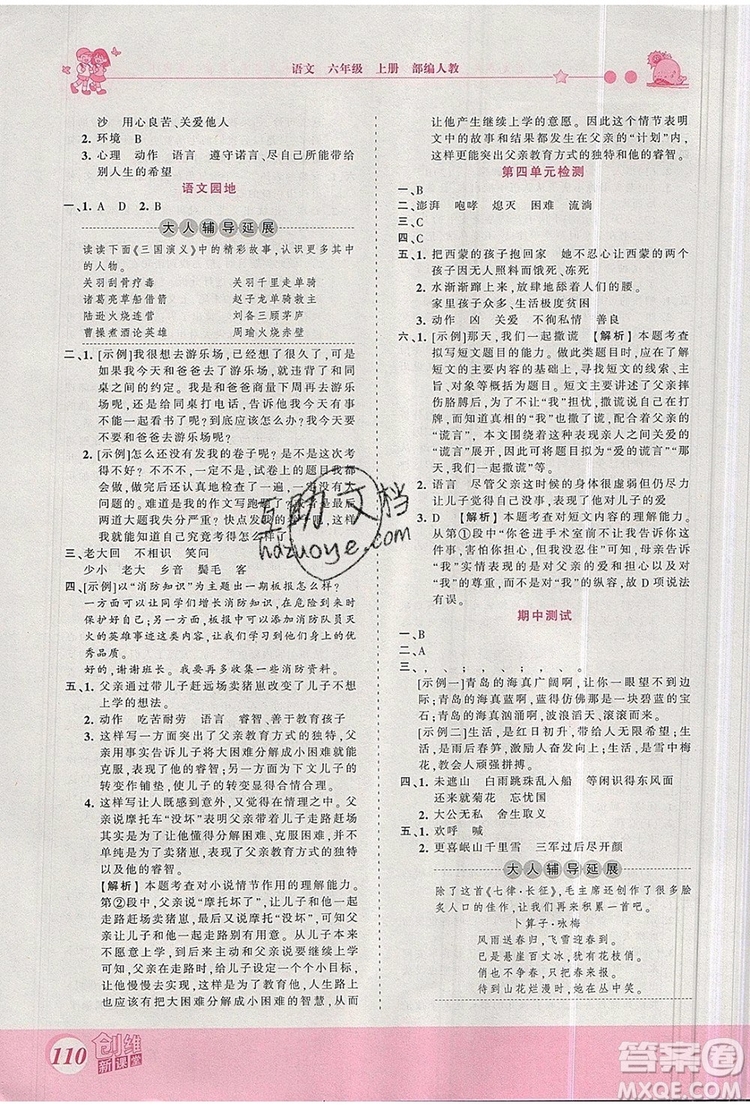 语文 六年级 上册 部编人教
沙 用心良苦、关爱他人
2. 环境 B
3. 心理 动作 语言 遵守诺言、尽自己所能带给
别人生的希望
语文园地
一、1. A D 2. B
大人辅导延展
读读下面《三国演义》中的精彩故事，认识更多其中
的人物。
关羽刮骨疗毒 关羽千里走单骑
诸葛亮草船借箭 赵子龙单骑救主
陆逊火烧连营 刘备三顾茅庐
曹操煮酒论英雄 周瑜火烧赤壁
二、1. [示例]我很想去游乐场，已经盼望很久了。可是
如果我今天和爸爸去游乐场，就违背了和同
桌之间的约定。我是应该和爸爸今天去游乐
场呢，还是给同桌打电话，告诉他我今天有事
不能去了呢？到底应该怎么办呢？我今天要
不要和爸爸去游乐场呢？
2. [示例]怎么还没有发我的卷子呢？难道这次考
得不好？不不不，不是，试卷上的题目我都会
做，做完后还认真地检查了一遍，应该没有大
的问题的！难道是我的作文写跑题了或是最后
两道大题失分严重？快点发我的卷子吧，让我
能早点知道自己究竟考得怎么样。
三、老大回 不相识 笑问
少小 老大 乡音 鬓毛 客
四、[示例]以“消防知识”为主题出一期板报怎么样？
一方面可以让同学们增长消防知识，学会更好地
保护好自己。另一方面，板报可以加入消防队员灭
火的英雄事迹，让同学们学习他们勇敢、负责的优
秀品质。
好的，谢谢班长。我多收集一些消防资料。
五、1. 父亲通过带儿子赶远场卖猪崽改变了儿子不想
上学的想法。
2. 动作 吃苦耐劳 语言 睿智、善于教育孩子
3. 这样写一方面突出了父亲教育方式的独特，父亲
用事实告诉儿子将大困难分解成小困难可以将其
克服，突出了父亲的睿智。另一方面也为下文作
铺垫，使儿子的转变显得合情合理。
4. 这样写让人既感到意外，又属于情理之中。
父亲说摩托车“没坏”表明父亲带着儿子走路赶场
是为了让儿子懂得分解困难、克服困难，并不
单纯是为了卖猪崽，突出了父亲教育方式的独特
以及他的睿智。
[解析]本题考查对小说情节作用的理解能力。
第②段中父亲说“摩托坏了”，才带着儿子一起
走路赶场卖猪崽，最后却说摩托“没坏”，可见
父亲是故意带着儿子走路去赶远场的。从一开始
不知道原因，到后来主动和父亲交流，儿子在和
父亲走路去赶场时，经历了一个个小目标，可以
让他慢慢懂得把大困难分解成小困难的智慧，从而
让他产生继续上学的意愿。因此，这个情节表明
文中的故事和结果都属于父亲的“计划”，从而
更能突出父亲教育方式的独特和他的睿智。
第四单元检测
一、B
二、澎湃 咆哮 熄灭 困难 流淌
三、C
四、C
五、1. 把西蒙的孩子抱回家 她不忍心让西蒙的两个
孩子独自面对寒冷和黑夜而饿死、冻死
2. 水渐渐蹿上来，放肆地舔着人们的腰。
家里孩子众多、生活极度贫困
3. 动作 凶 关爱 不徇私情 善良
六、1. [示例]那天，我们一起撒谎 [解析]本题考查
拟写短文题目的能力。做此类题目时，要在了
解短文的主要内容的基础上，找寻短文的线索、主
旨，对象等概括题目。短文主要讲述了父亲摔
伤胳膊的事情，为了不让“我”担心，撒谎说自己在打
牌，打麻将；为了不让父亲担心“我”也撒了谎，说父亲的
“谎言”。本文围绕着这种表现亲人之间关爱的
“谎言”展开，因此题目可以拟为“那天，我们
一起撒谎”。
2. 语言 尽管父亲这时候的身体很虚弱但仍尽力
让儿子觉得没有大碍，体现了他对儿子的爱
3. D [解析]本题考查对短文内容的理解能力。
从第①段中的“你爸进手术室前不让我告诉你
这件事，怕你分心、担心”可以看出，母亲告诉
“我”实情表现的是对父亲的爱和担心，以及对
“我”的关心，并不是对“我”的纵容，故 D 项理
解有误。
期中测试
一、B
二、A
[示例一]青岛的海真广阔啊，一眼望不到
边际；青岛的海真蓝啊，蓝得如一块碧蓝的蓝宝
石；青岛的海真汹涌啊，波浪滔天。
[示例二]生活，是红日初升，带给人无限希望；生
活，是雨后春笋，激励人奋勇向前；生活，是雪中梅
花，教会人顽强拼搏。
四、1. 未遮山 白雨跳珠乱入船 等闲识得东风面
还来就菊花 忘忧国
2. 大公无私 舍生取义
五、1. 欢呼 喊
2. 更喜岷山千里雪 三军过后尽开颜
大人辅导延展
除了这首《七律·长征》，毛主席还创作了很多脍
炙人口的佳作，让我们一起来积累吧！
卜算子·咏梅
风雨送春归，飞雪迎春到。
已是悬崖百丈冰，犹有花枝俏。
俏也不争春，只把春来报。
待到山花烂漫时，她在丛中笑。
110 创维新课堂
互助文档
hdzuoye.com
答案圈
MXQE.COM